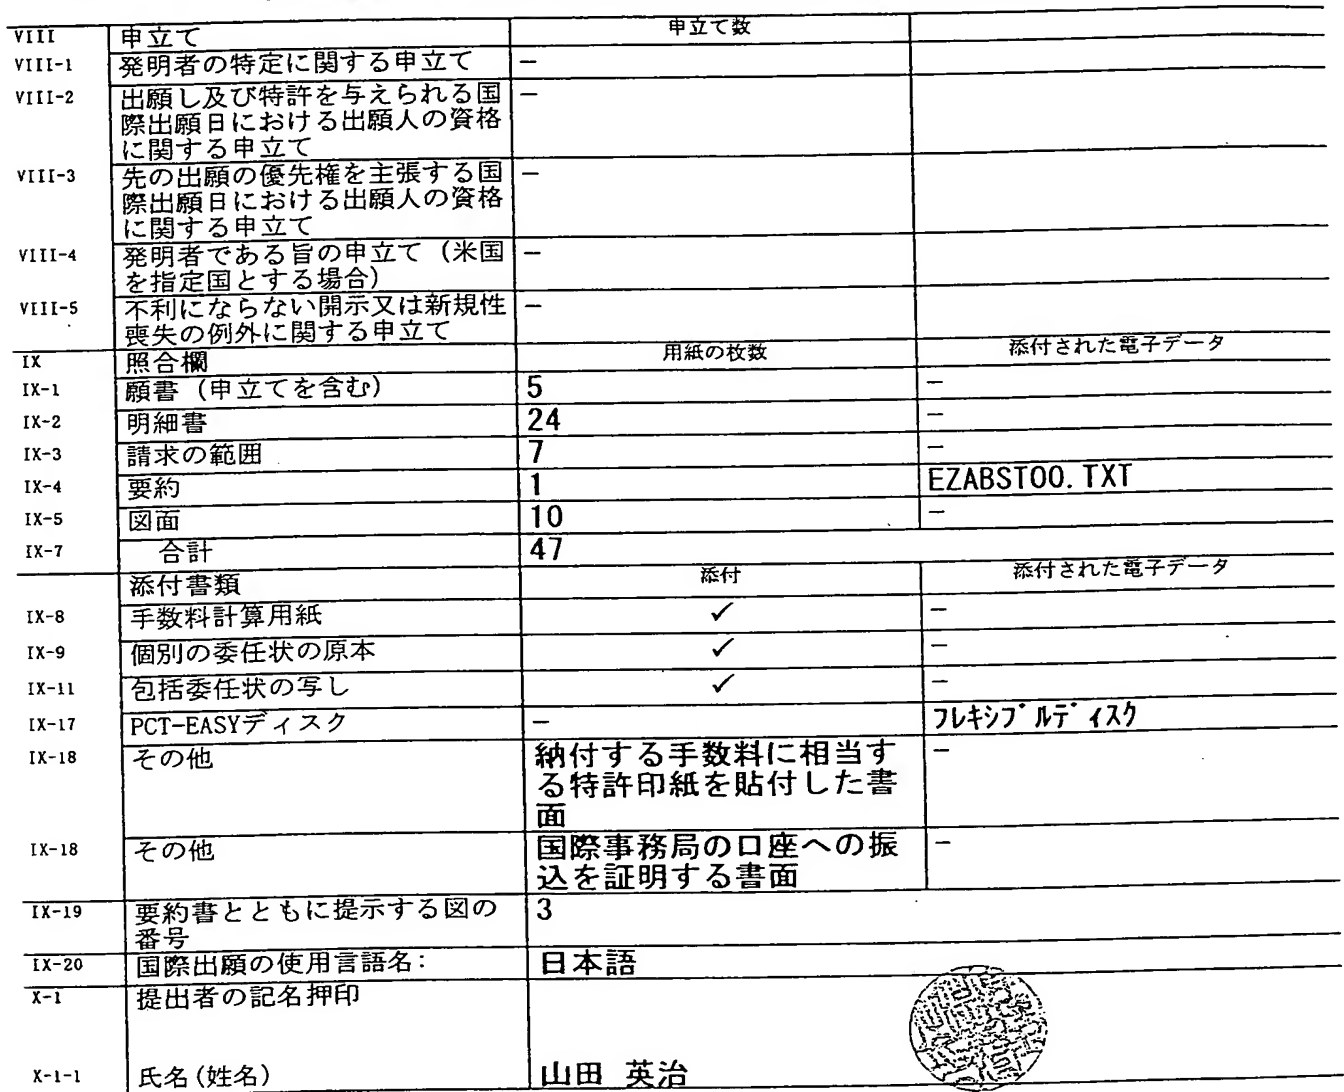 VIII 申立て 申立て数
VIII-1 発明者の特定に関する申立て －
VIII-2 出願し及び特許を与えられる国 －
際出願日における出願人の資格
に関する申立て
VIII-3 先の出願の優先権を主張する国 －
際出願日における出願人の資格
に関する申立て
VIII-4 発明者である旨の申立て（米国 －
を指定国とする場合）
VIII-5 不利にならない開示又は新規性 －
喪失の例外に関する申立て
IX 照合欄 用紙の枚数 添付された電子データ
IX-1 願書（申立てを含む） 5 －
IX-2 明細書 24 －
IX-3 請求の範囲 7 －
IX-4 要約 1 EZABST00.TXT
IX-5 図面 10 －
IX-7 合計 47
添付書類 添付 添付された電子データ
IX-8 手数料計算用紙 ✓ －
IX-9 個別の委任状の原本 ✓ －
IX-11 包括委任状の写し ✓ －
IX-17 PCT-EASYディスク － ﾌﾚｷｼﾌﾞﾙﾃﾞｨｽｸ
IX-18 その他 納付する手数料に相当す －
る特許印紙を貼付した書
面
IX-18 その他 国際事務局の口座への振 －
込を証明する書面
IX-19 要約書とともに提示する図の 3
番号
IX-20 国際出願の使用言語名： 日本語
X-1 提出者の記名押印
X-1-1 氏名(姓名) 山田 英治